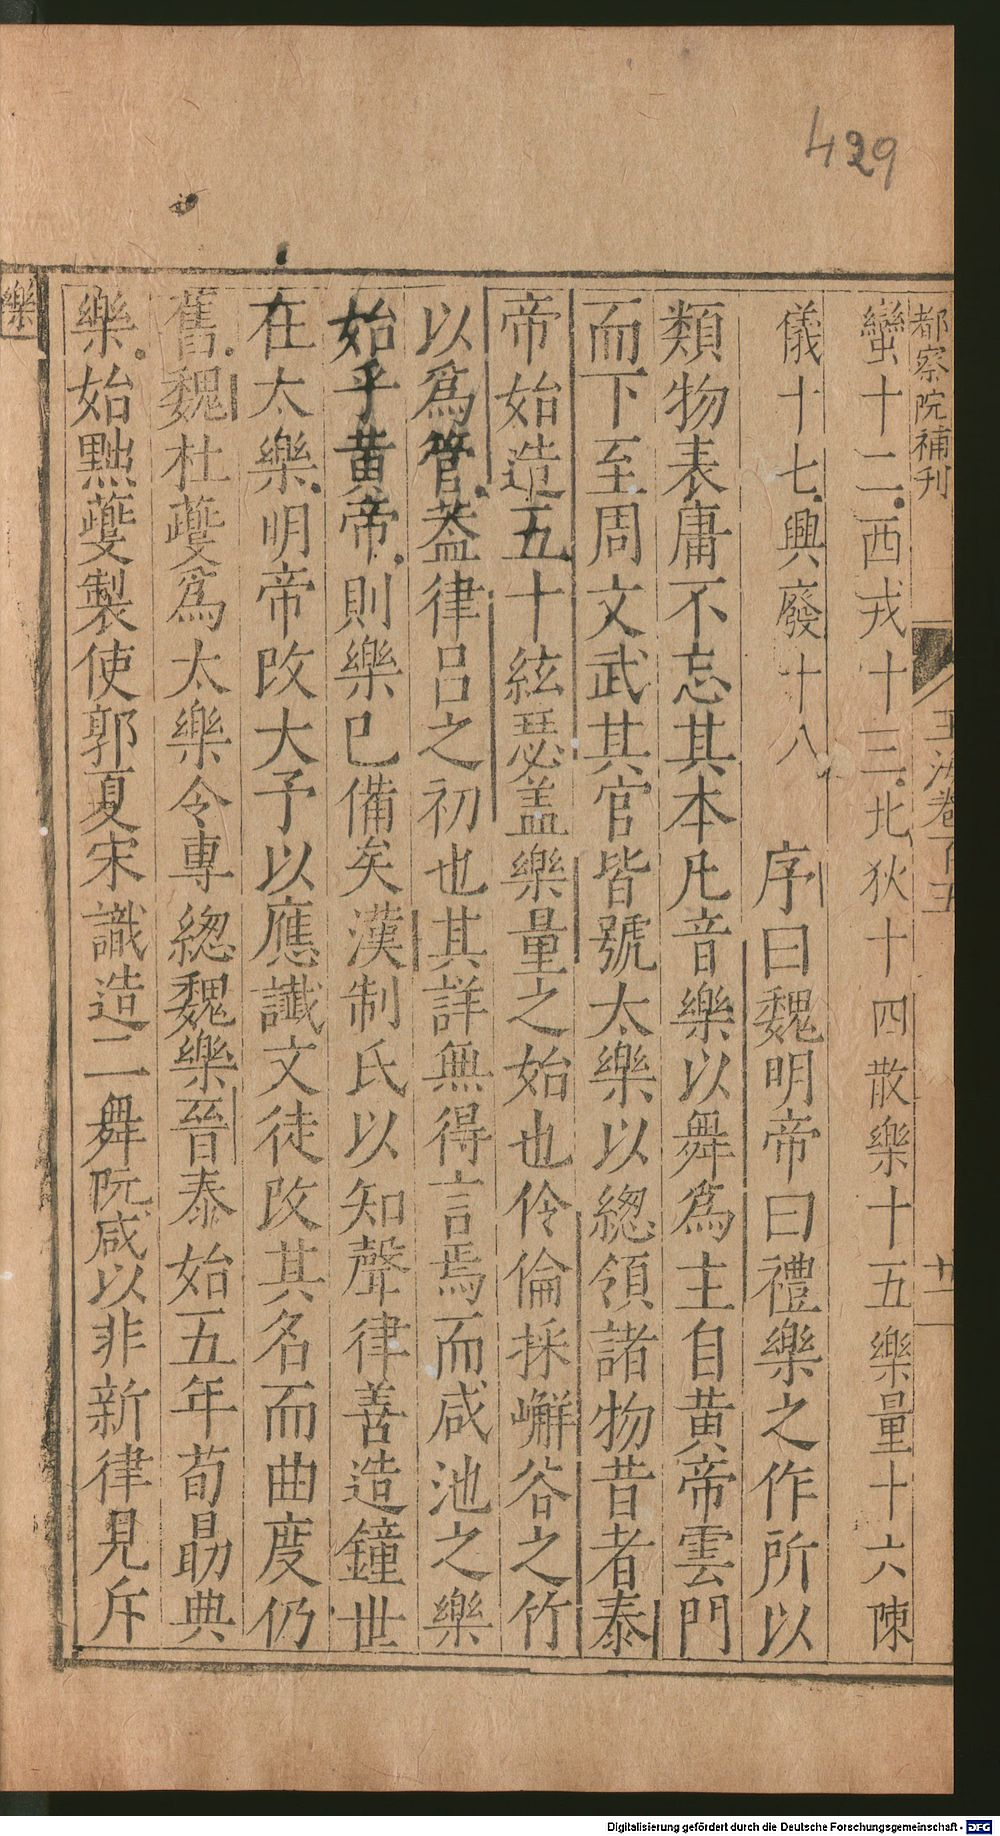 429
都察院補刊
玉海卷百五
蠻十二西戎十三北狄十四散樂十五樂量十六陳
儀十七興廢十八 序曰魏明帝曰禮樂之作所以
類物表庸不忘其本凡音樂以舞爲主自黄帝雲門
而下至周文武其官皆號太樂以緫領諸物昔者泰
帝始造五十絃瑟盖樂量之始也伶倫採嶰谷之竹
以爲管盖律吕之初也其詳無得言焉而咸池之樂
始乎黄帝則樂已備矣漢制氏以知聲律善造鐘世
在太樂明帝改大予以應讖文徒改其名而曲度仍
舊魏杜夔爲太樂令專緫魏樂晉泰始五年荀勗典
樂始黜夔製使郭夏宋識造二舞阮咸以非新律見斥
樂
Digitalisierung gefördert durch die Deutsche Forschungsgemeinschaft - DFG